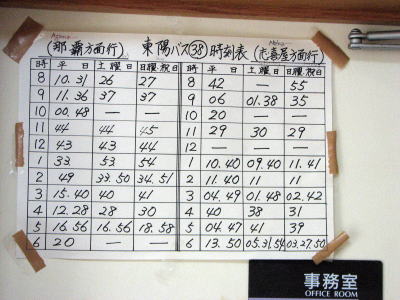 (那覇方面行) 東陽バス㊳時刻表 (志喜屋方面行)
時 平日 土曜日 日曜.祝日 時 平日 土曜日 日曜.祝日
8 10.31 26 27 8 42 — 55
9 11.36 37 37 9 06 01.38 35
10 00.48 — — 10 20 — —
11 44 44 45 11 29 30 29
12 43 43 44 12 — — —
1 33 53 54 1 10.40 09.40 11.41
2 49 33.50 34.51 2 11.40 11 11
3 15.40 40 41 3 04.49 01.48 02.42
4 12.28 28 30 4 40 38 31
5 16.56 16.56 18.58 5 04.47 41 39
6 20 — — 6 13.50 05.31.54 03.27.50
事務室
OFFICE ROOM